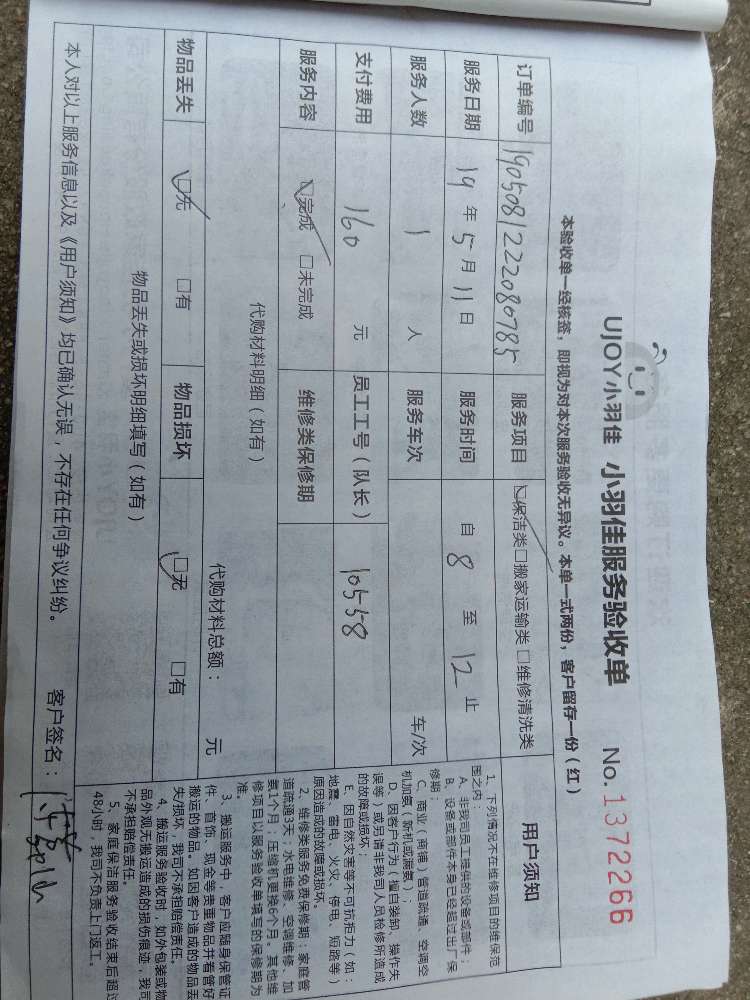 UJOY小羽佳 小羽佳服务验收单 No.1372266
本验收单一经核签，即视为对本次服务验收无异议。本单一式两份，客户留存一份（红）
订单编号 1905081222080785 服务项目 ☑保洁类□搬家运输类□维修清洗类
服务日期 19年5月11日 服务时间 自8至12止
服务人数 1人 服务车次 车/次
支付费用 160元 员工工号（队长） 10558
服务内容 ☑完成 □未完成 维修类保修期
代购材料明细（如有）
代购材料总额： 元
物品丢失 ☑无 □有 物品损坏 ☑无 □有
物品丢失或损坏明细填写（如有）
本人对以上服务信息以及《用户须知》均已确认无误，不存在任何争议纠纷。 客户签名：
用户须知
1、下列情况不在维修项目的维保范
围之内：
A、非我司员工提供的设备或部件；
B、设备或部件本身已经超过出厂保
修期；
C、商业（商铺）管道疏通、空调空
机加氨（新机或漏氨）；
D、因客户行为（擅自装卸、操作失
误等）或另请非我司人员检修所造成
的故障或损坏。
E、因自然灾害等不可抗拒力（如：
地震、雷电、火灾、停电、短路等）
原因造成的故障或损坏。
2、维修类服务免费保修期：家庭管
道疏通3天；水电维修、空调维修、加
氨1个月；压缩机更换6个月。其他维
修项目以服务验收单填写的保修期为
准。
3、搬运服务中，客户应随身保管证
件、首饰、现金等贵重物品并看管好
搬运的物品。如因客户造成的物品丢
失/损坏，我司不承担赔偿责任。
4、搬运服务验收时，如外包装或物
品外观无搬运造成的损伤痕迹，我司
不承担赔偿责任。
5、家庭保洁服务验收结束后超过
48小时，我司不负责上门返工。